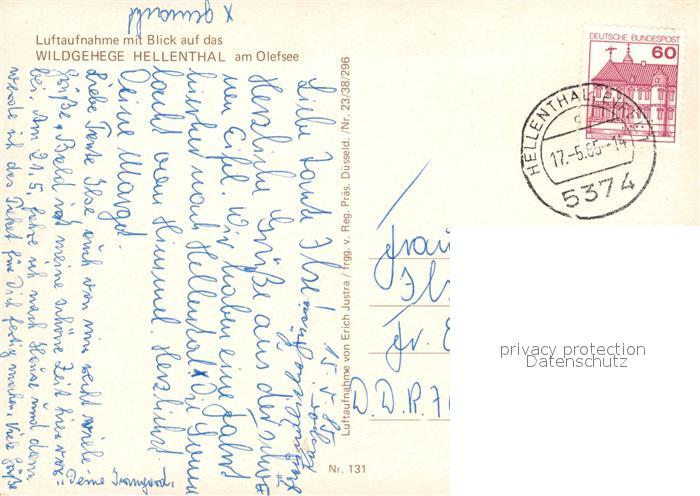 Luftaufnahme mit Blick auf das
WILDGEHEGE HELLENTHAL am Olefsee
x gemacht
Liebe Tante Ilse!
15. 5. 85
Herzliche Grüße aus der
nen Eifel. Wir haben eine Fahrt
hierher nach Hellental x Die Sonne
lacht vom Himmel. Herzlichst
Deine Margot
Liebe Tante Ilse auch von mir recht viele
Grüße. Bald ist meine schöne Zeit hier vor-
bei. Am 21.5. fahre ich nach Hause und dann
werde ich das Paket für Dich fertig machen. Viele Grüße
Deine Irmgard.
Luftaufnahme von Erich Justra / frgg. v. Reg. Präs. Düsseld. /Nr. 23/38/296
Nr. 131
DEUTSCHE BUNDESPOST
60
HELLENTHAL
17.-5.85-14
5374
Frau
Fr.
D.D.R. 7
privacy protection
Datenschutz